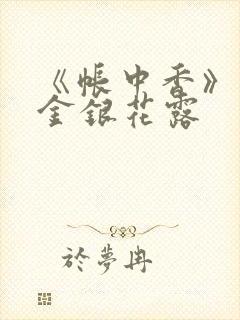 《帳中香》
金銀花露
於夢冉